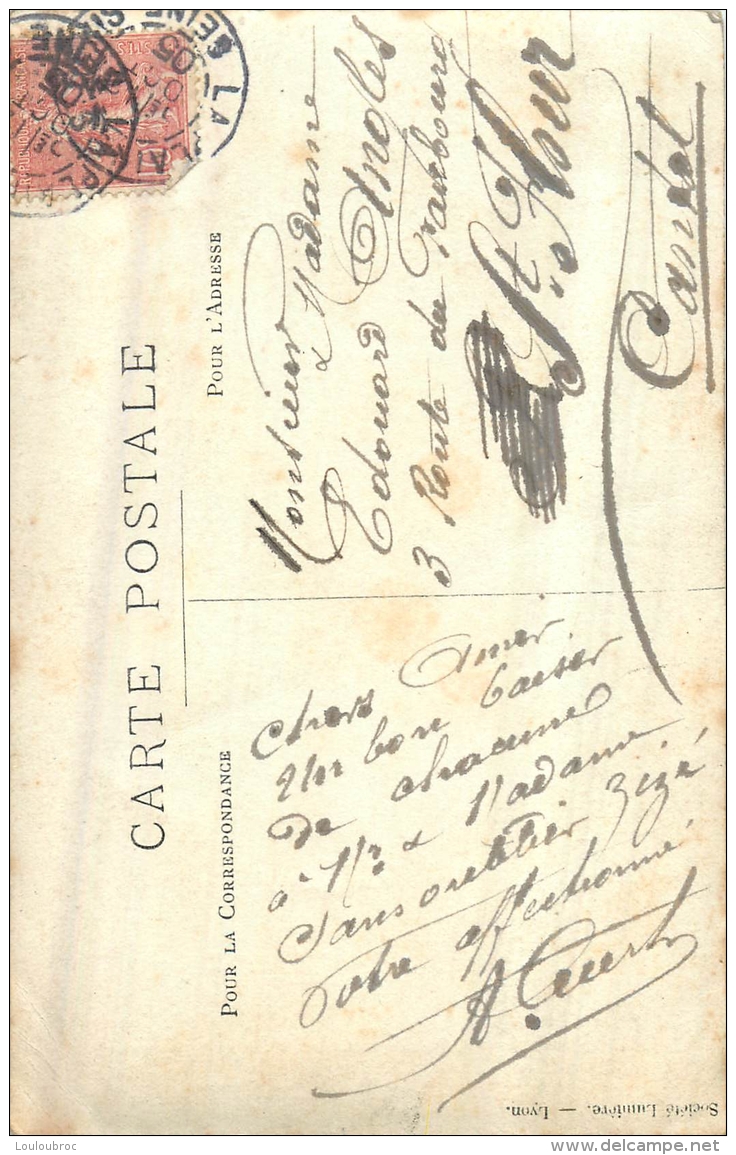 CARTE POSTALE
POUR LA CORRESPONDANCE
Chers Amis
Un bon baiser
de chacune
à Mr & Madame
sans oublier Zizé
Votre affectionné
POUR L'ADRESSE
Monsieur
& Madame
Edouard
3 Route du Faubourg
St. Flour
Cantal
RÉPUBLIQUE FRANÇAISE
POSTES
LA
SEINE
05
Société Lumière. — Lyon.
Louloubroc
www.delcampe.net